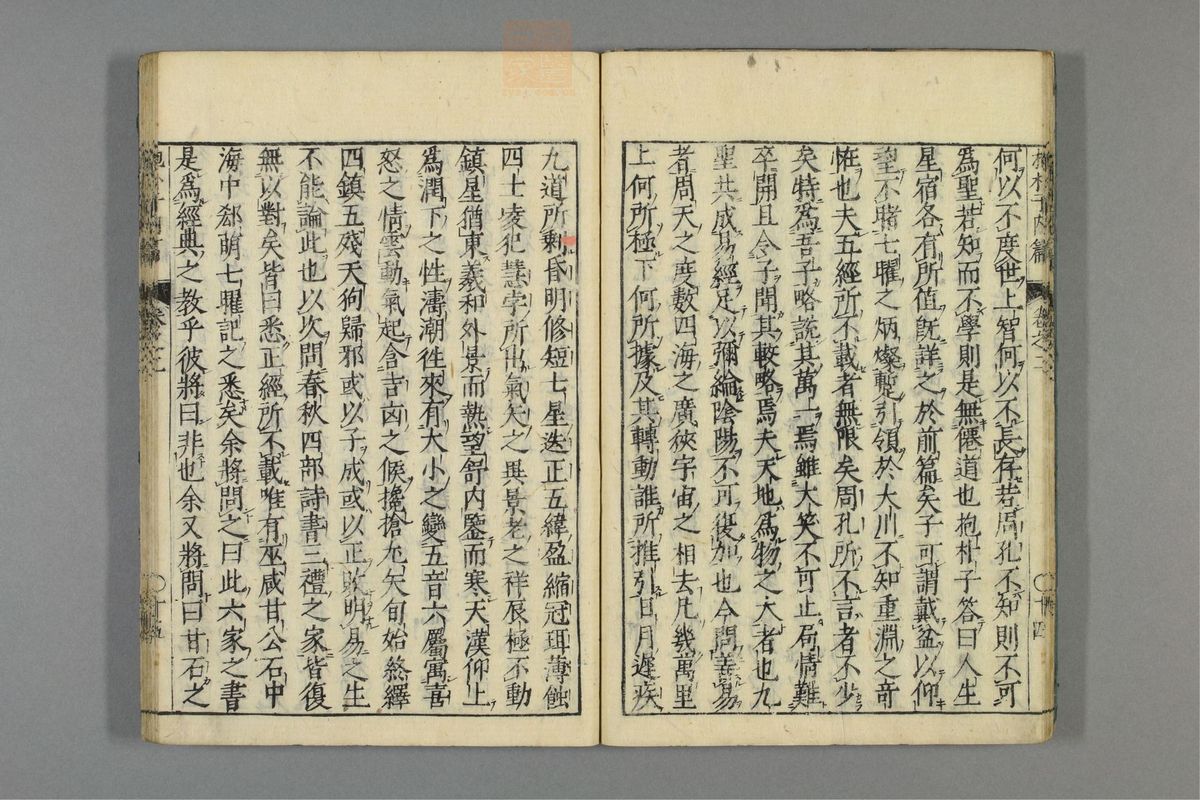 抱朴子內篇 卷之二 〇十四
何以不度世上智何以不長存若周孔不知則不可
爲聖若知而不學則是無僊道也抱朴子答曰人生
星宿各有所值既詳之於前篇矣子可謂戴盆以仰
望不睹七曜之炳燦暫引領於大川不知重淵之奇
恠也夫五經所不載者無限矣周孔所不言者不少
矣特爲吾子略說其萬一焉雖大笑不可止局情難
卒開且令子聞其較略焉夫天地爲物之大者也九
聖共成易經足以彌綸陰陽不可復加也今問善易
者周天之度數四海之廣狹宇宙之相去凡幾萬里
上何所極下何所據及其轉動誰所推引日月遲疾
九道所剩昏明修短七星迭正五緯盈縮冠珥薄蝕
四七凌犯慧孛所出氣矢之異景老之祥辰極不動
鎮星獨東羲和外景而熱望舒內鑒而寒天漢仰上
爲潤下之性濤潮往來有大小之變五音六屬寓喜
怒之情雲動氣起含吉凶之候攙搶尤矢旬始絳繹
四鎮五殘天狗歸邪或以子成或以正敗明易之生
不能論此也以次問春秋四部詩書三禮之家皆復
無以對矣皆曰悉正經所不載唯有巫咸甘公石中
海中郄萌七曜記之悉矣余將問之曰此六家之書
是爲經典之教乎彼將曰非也余又將問曰甘石之